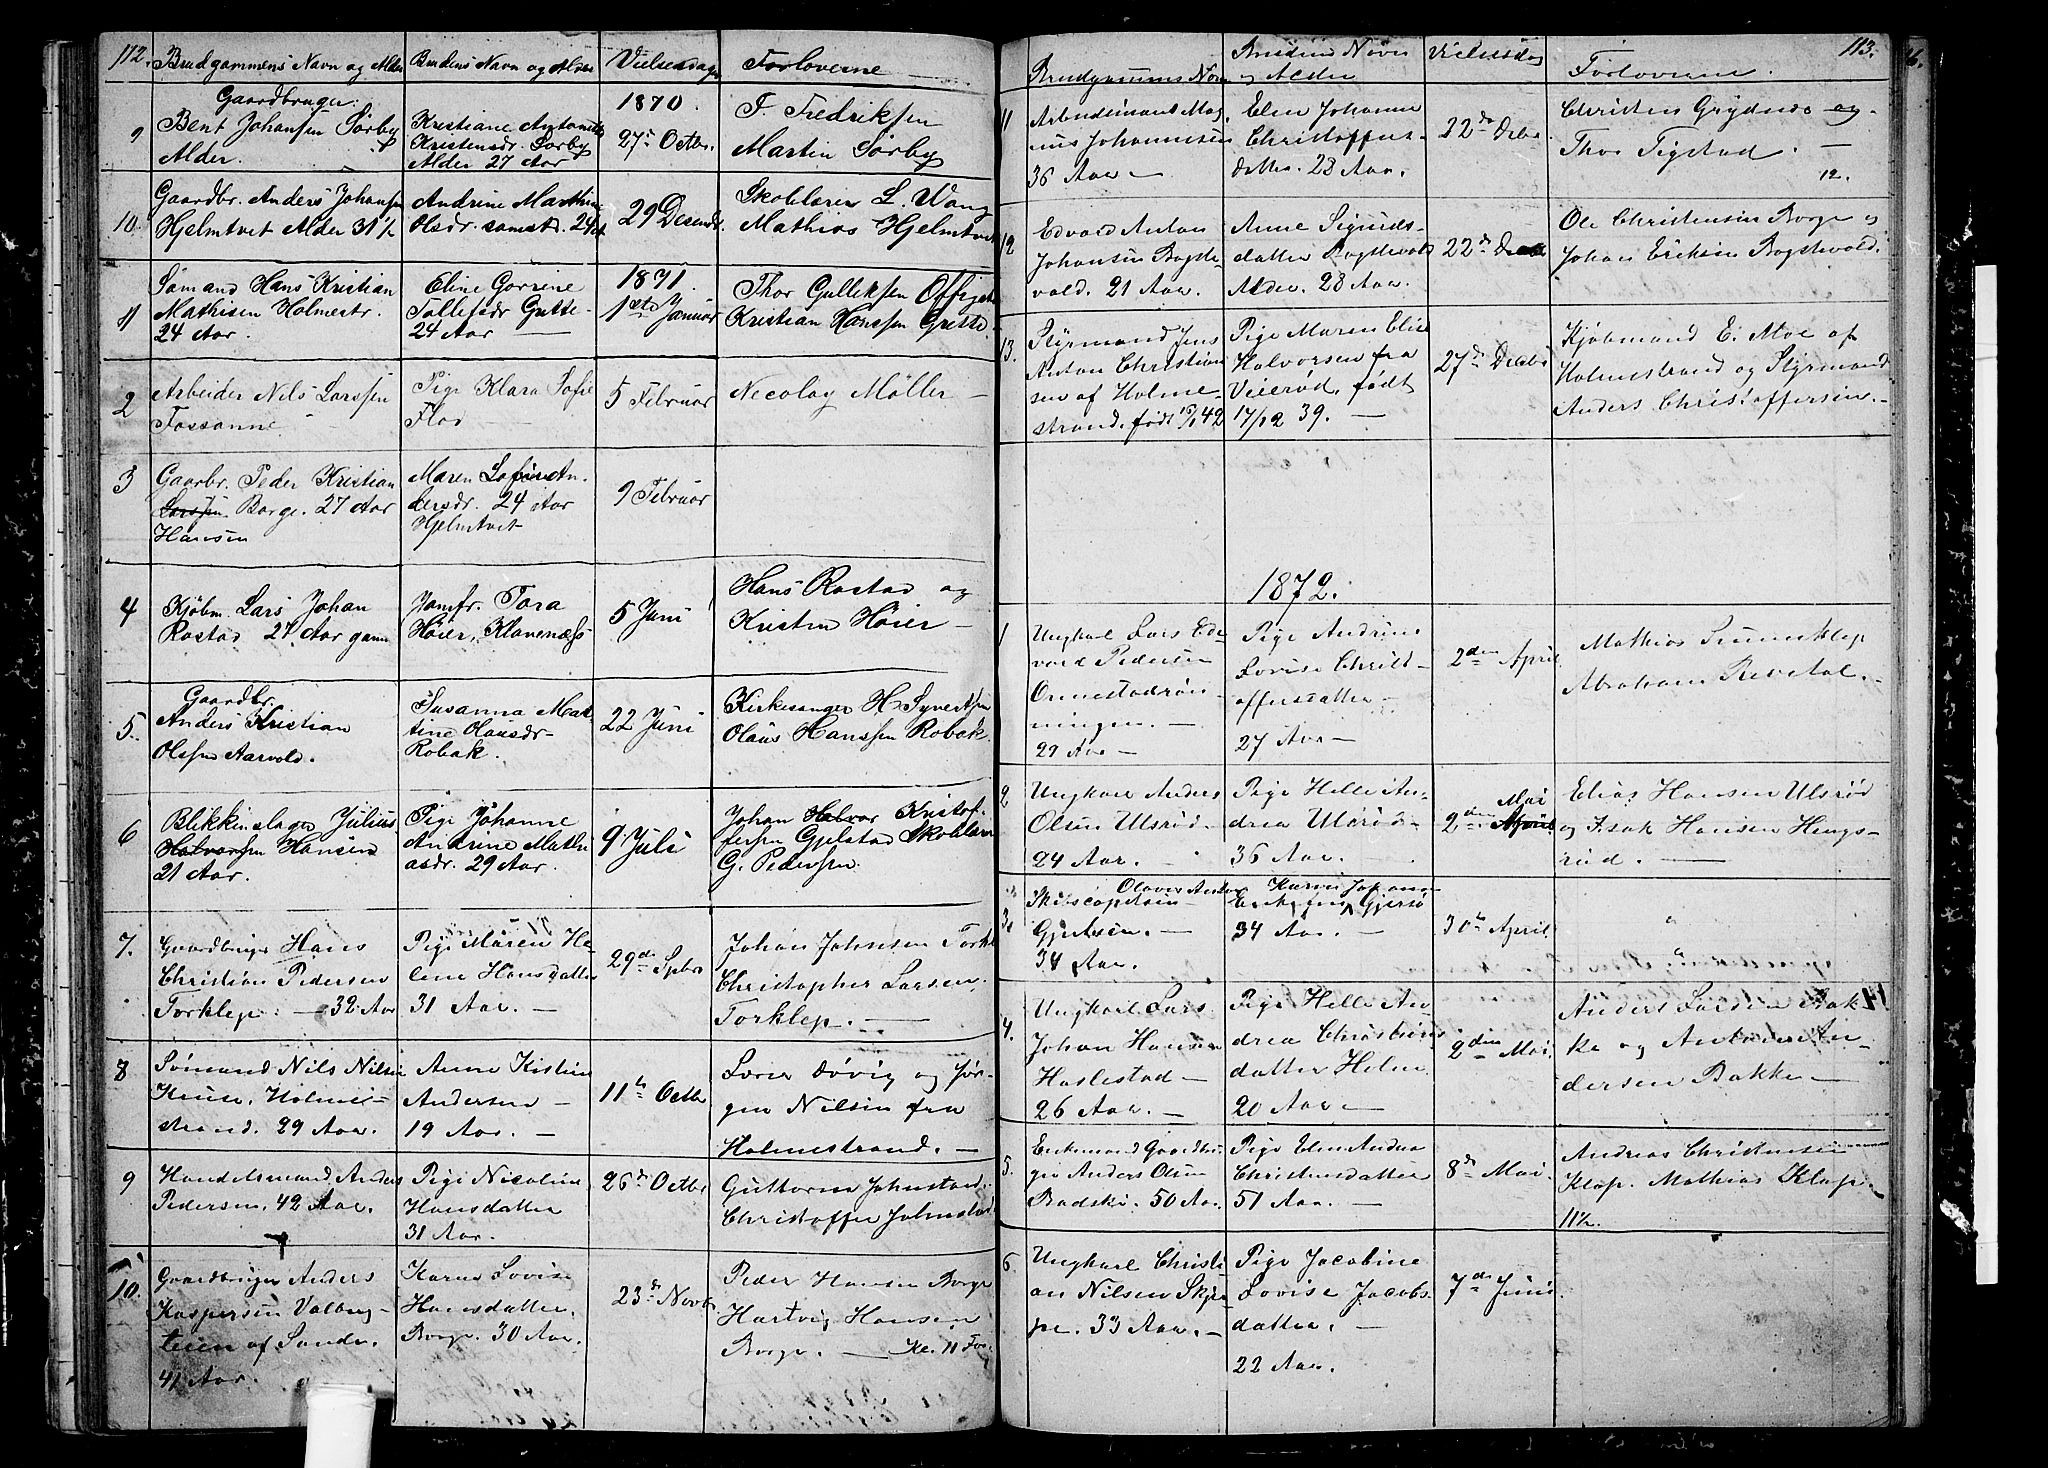 112. Brudgommens Navn og Alder Brudens Navn og Alder Vielsesdag Forloverne
9
Gaardbruger
Bent Johansen Sörby
Alder.
Kristiane
Kristensdr. Sörby
Alder 27 Aar
1870.
27de Octbr.
F. Fredriksen
Martin Sörby
10.
Gaardbr. Anders Johansen
Hjelmtvet Alder 31½
Andrine Marthine
Olsdr. samstd. 24
29 Decembr
Skolelærer L. Wang
Mathias Hjelmtvet
1
Sömand Hans Kristian
Mathisen Holmestr.
24 Aar.
Eline
24 Aar
1871.
1ste Januar
Thor Gulliksen
Kristian Hanssen
2
Arbeider Nils Larssen
Fossanne
Pige Klara Sofie
Flod
5 Februar
Necolay Möller
3
Gaarbr. Peder Kristian
Larssen Borge. 27 Aar
Hansen
Maren An-
dersdr. 24 Aar
Hjelmtvet
9 Februar
4
Kjöbm. Lars Johan
Rostad 27 Aar gam
Jomfr. Tora
Höier, Klavenæss
5 Juni
Hans Rostad og
Kristen Höier
5.
Gaardbr.
Anders Kristian
Olssen Aarvold.
Susanna Mar-
tine Hansdr
Robak.
22 Juni
Kirkesanger H. Syvertsen
Olaus Hanssen Robak.
6
Blikkenslager Julius
Halvorsen Hansen
21 Aar.
Pige Johanne
Andrine Mathi
asdr. 29 Aar.
9. Juli
Johan Halvor Kristof-
fersen Gjelstad Skolelærer
G. Pedersen.
7.
Gaardbruger Hans
Christian Pedersen
Torklep. — 32 Aar
Pige Maren He-
lene Hansdatter
31 Aar. —
29de Sptbr
Johan Johnsen Torkl
Christopher Larsen
Torklep. —
8
Sömand Nils Nilsen
Kruse, Holme-
strand. 29 Aar.
Anne Kistine
Andersen —
19 Aar. —
11te Octbr
Lærer Dövig og Jör-
gen Nilsen fra
Holmestrand. —
9
Handelsmand Anders
Pedersen. 42 Aar.
Pige Nicoline
Hansdatter
31 Aar.
26de Octbr
Guttorm
Christoffer
10.
Gaardbruger Anders
Kaspersen Valberg-
teien af Sande.
41 Aar.
Karen Lovise
Hansdatter
Borge. 30 Aar.
23de Novb
Peder Hansen Borge
Hartvig Hansen
Borge. — Kl. 11 For.
Brudgomens Navn Brudens Navn og Alder Vielsesdag Forloverne. 113.
11
Arbeidsmand Mag-
nus Johannesen
36 Aar —
Elen Johanne
Christoffers-
datter. 23 Aar.
22de Decbr.
Christen og
Thor Tigstad. —
12.
12
Edvard Anton
Johansen Bogste-
vold. 21 Aar.
Anne Sigurds-
datter Bogstevold
Alder. 28 Aar.
22de
Ole Christensen Borge og
Johan Eriksen Bogstevold.
13.
Styrmand Jens
Anton Christian
sen af Holme-
strand, födt 42
Pige Maren Elise
Halvorsen fra
Veieröd, födt
17/12 39. —
27de Decbr
Kjöbmand E. Moe af
Holmestrand og Styrmand
Anders Christoffersen. —
1872.
1
Ungkarl Lars Ed-
vard Pedersen
Ormestadrön-
ningen. —
29 Aar —
Pige Andrine
Lovise Christ-
offersdatter —
27 Aar —
2den April
Mathias
Abraham Revetal. —
2
Ungkarl Anders
Olsen Ulsröd.
24 Aar. —
Pige Helle An-
drea Ulsröd
36 Aar. —
Mai
2den April
Elias Hansen Ulsröd
og Isak Hansen Hengs-
rud. —
3.
Skibscaptein Olaves Anton
Gjertsen. —
34 Aar.
Karen
Gjersö
34 Aar. —
30te April.
"
"
4.
Ungkarl Lars
Johan Hansen
Haslestad —
26 Aar. —
Pige Helle An-
drea Christens
datter Holm.
20 Aar. —
2den Mai.
Anders Bak-
ke og An-
dersen Bakke —
5.
Enkemand Gaardbru-
ger Anders Olsen
Badski. 50 Aar.
Pige Elen Andrea
Christensdatter
51 Aar. —
8de Mai.
Andreas Christensen
Klop. Mathias Klop. —
11½.
6
Ungkarl Christi-
an Nilsen Skje-
pe. 33 Aar. —
Pige Jacobine
Lovise Jacobs-
datter. —
22 Aar.
7de Juni